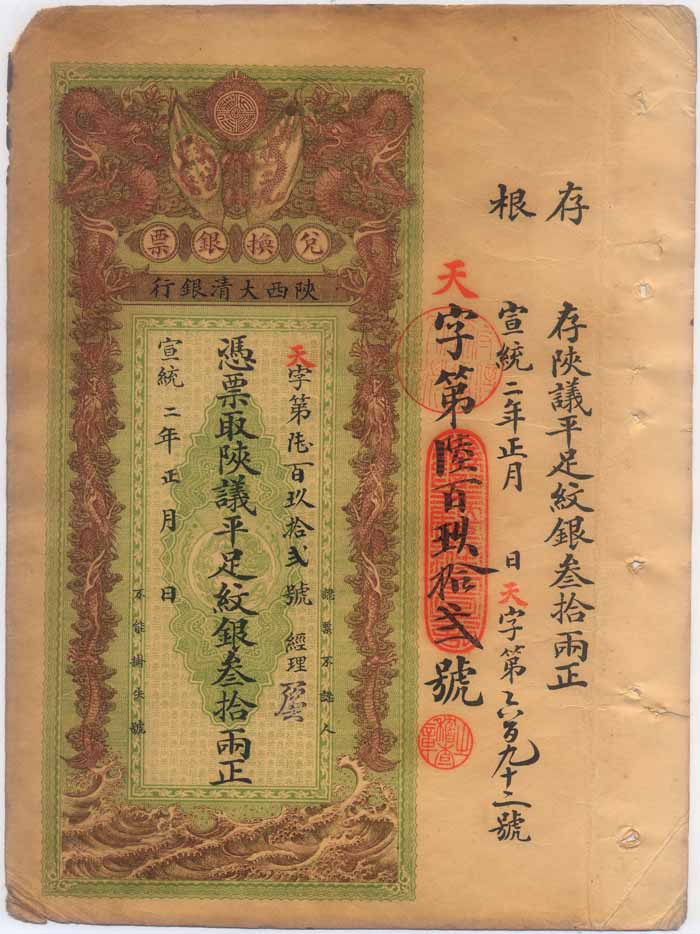 存根
存陝議平足紋銀叁拾兩正
宣統二年正月 日天字第六百九十二號
天字第陸百玖拾弍號
稽查之章
兌換銀票
陝西大清銀行
認票不認人
天字第陸百玖拾弍號 經理
憑票取陝議平足紋銀叁拾兩正
宣統二年正月 日
不能掛失號